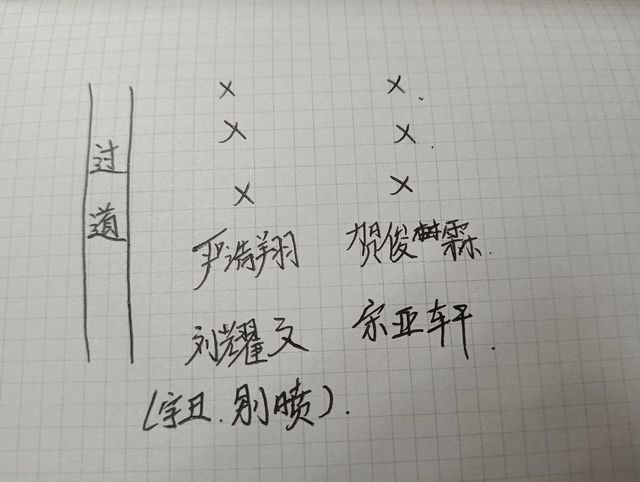 过道
× ×
× ×
× ×
严浩翔 贺俊霖
刘耀文 宋亚轩
(字丑.别喷).